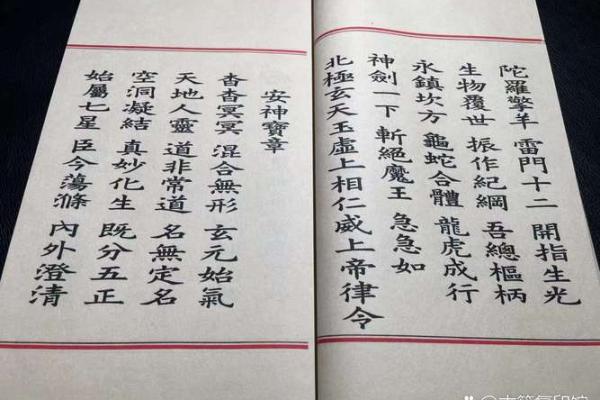 陀羅擎羊 雷門十二 開指生光
生物覆世 振作紀綱 吾總樞柄
永鎮坎方 龜蛇合體 龍虎成行
神劍一下 斬絕魔王 急急如
北極玄天玉虛上相仁威上帝律令
安神寶章
杳杳冥冥 混合無形 玄元始氣
天地人靈 道非常道 名無定名
空洞凝結 真妙化生 既分五正
始屬七星 臣今蕩滌 內外澄清